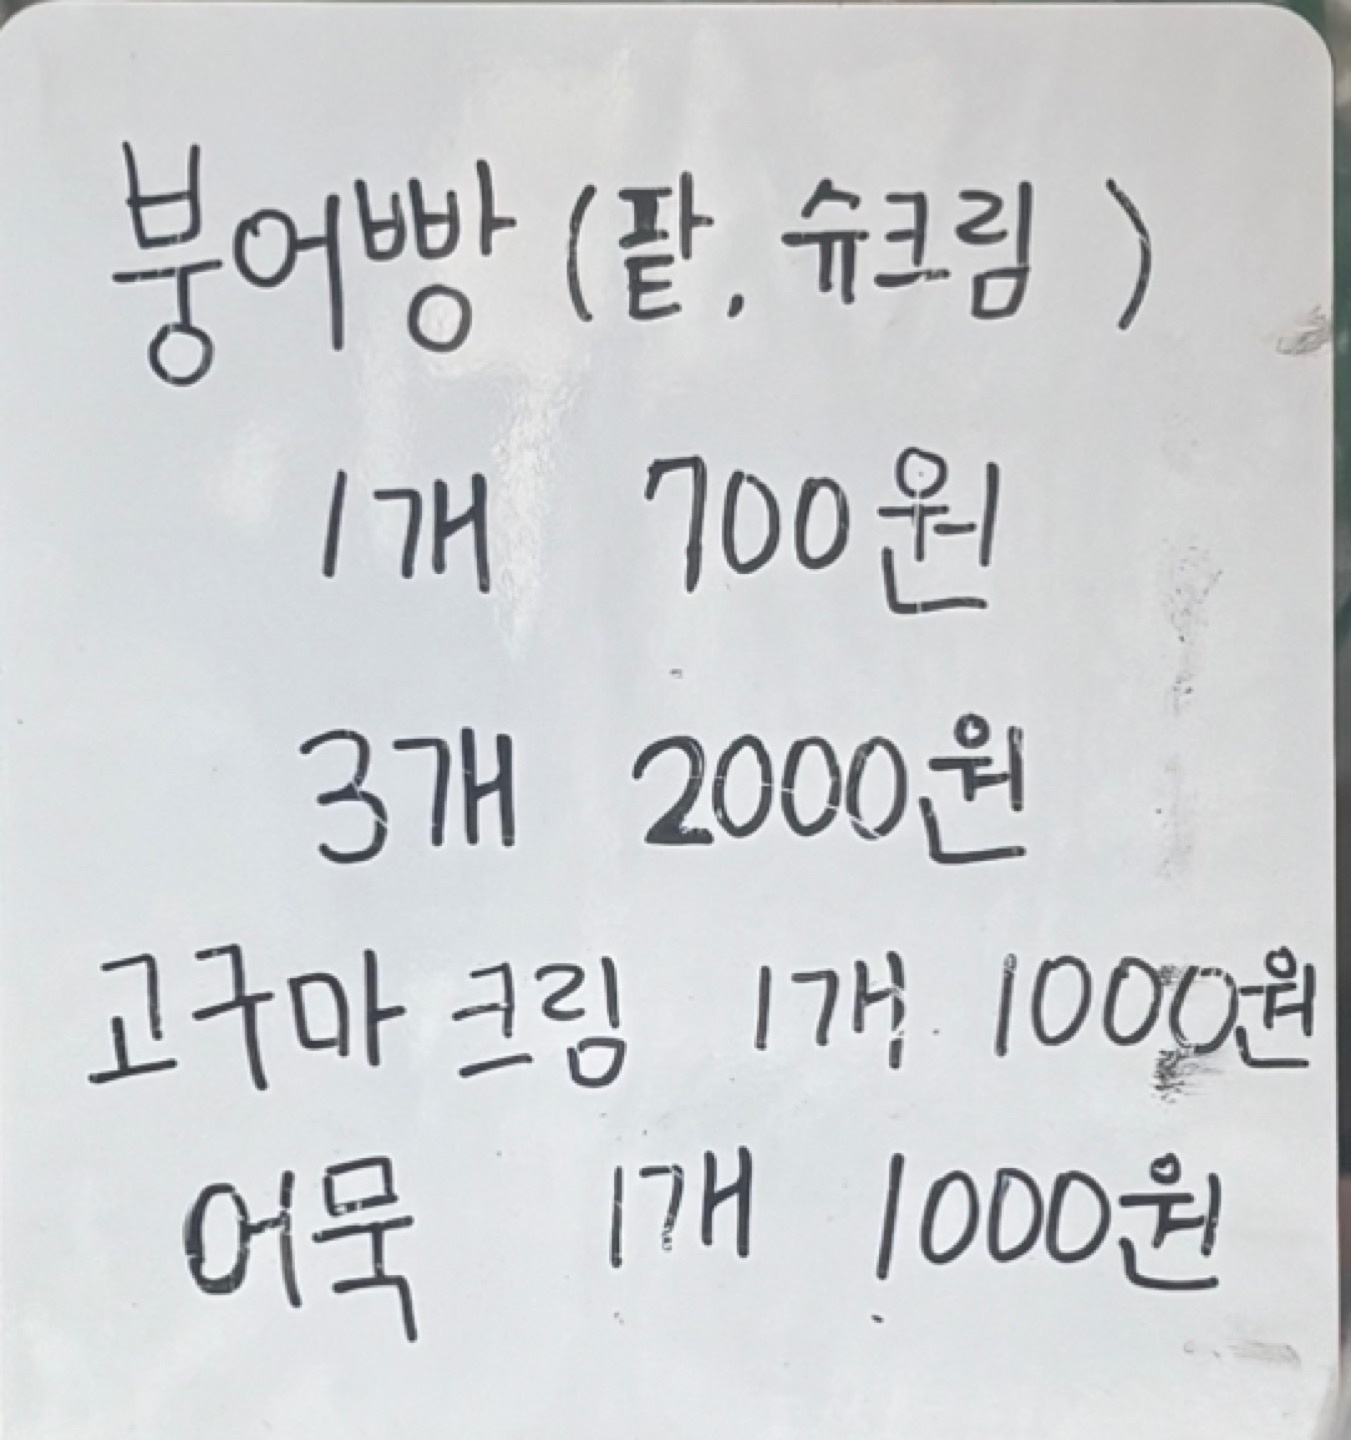 붕어빵 (팥, 슈크림 )
1개 700원
3개 2000원
고구마 크림 1개 1000원
어묵 1개 1000원